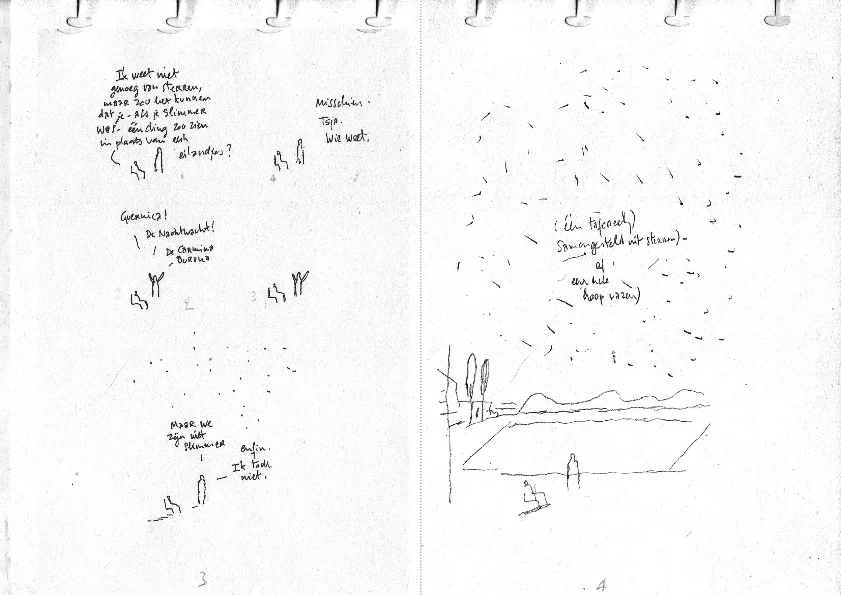 Ik weet niet
genoeg van sterren,
maar zou het kunnen
dat je - als je slimmer
was - één ding zou zien
in plaats van een
eilandjes?
Misschien.
Tsja.
Wie weet.
4
Guernica!
De Nachtwacht!
De Carmina
Burana
2
3
Maar we
zijn niet
slimmer
enfin.
Ik toch
niet.
3
(Één tafereel)
Samengesteld uit sterren)-
of
een hele
hoop vazen)
4